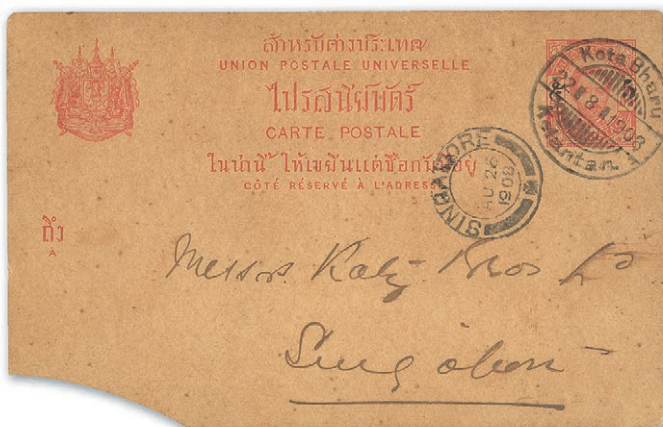 สำหรับต่างประเทศ
UNION POSTALE UNIVERSELLE
ไปรสนียบัตร์
CARTE POSTALE
ในน่านี้ ให้เขียนแต่ชื่อกับที่อยู่
CÔTÉ RÉSERVÉ À L'ADRESSE
Kota Bharu
22 8 1908
Kelantan
SINGAPORE
AU 26
1908
ถึง
A
Messrs Katz Bros Ld
Singapore